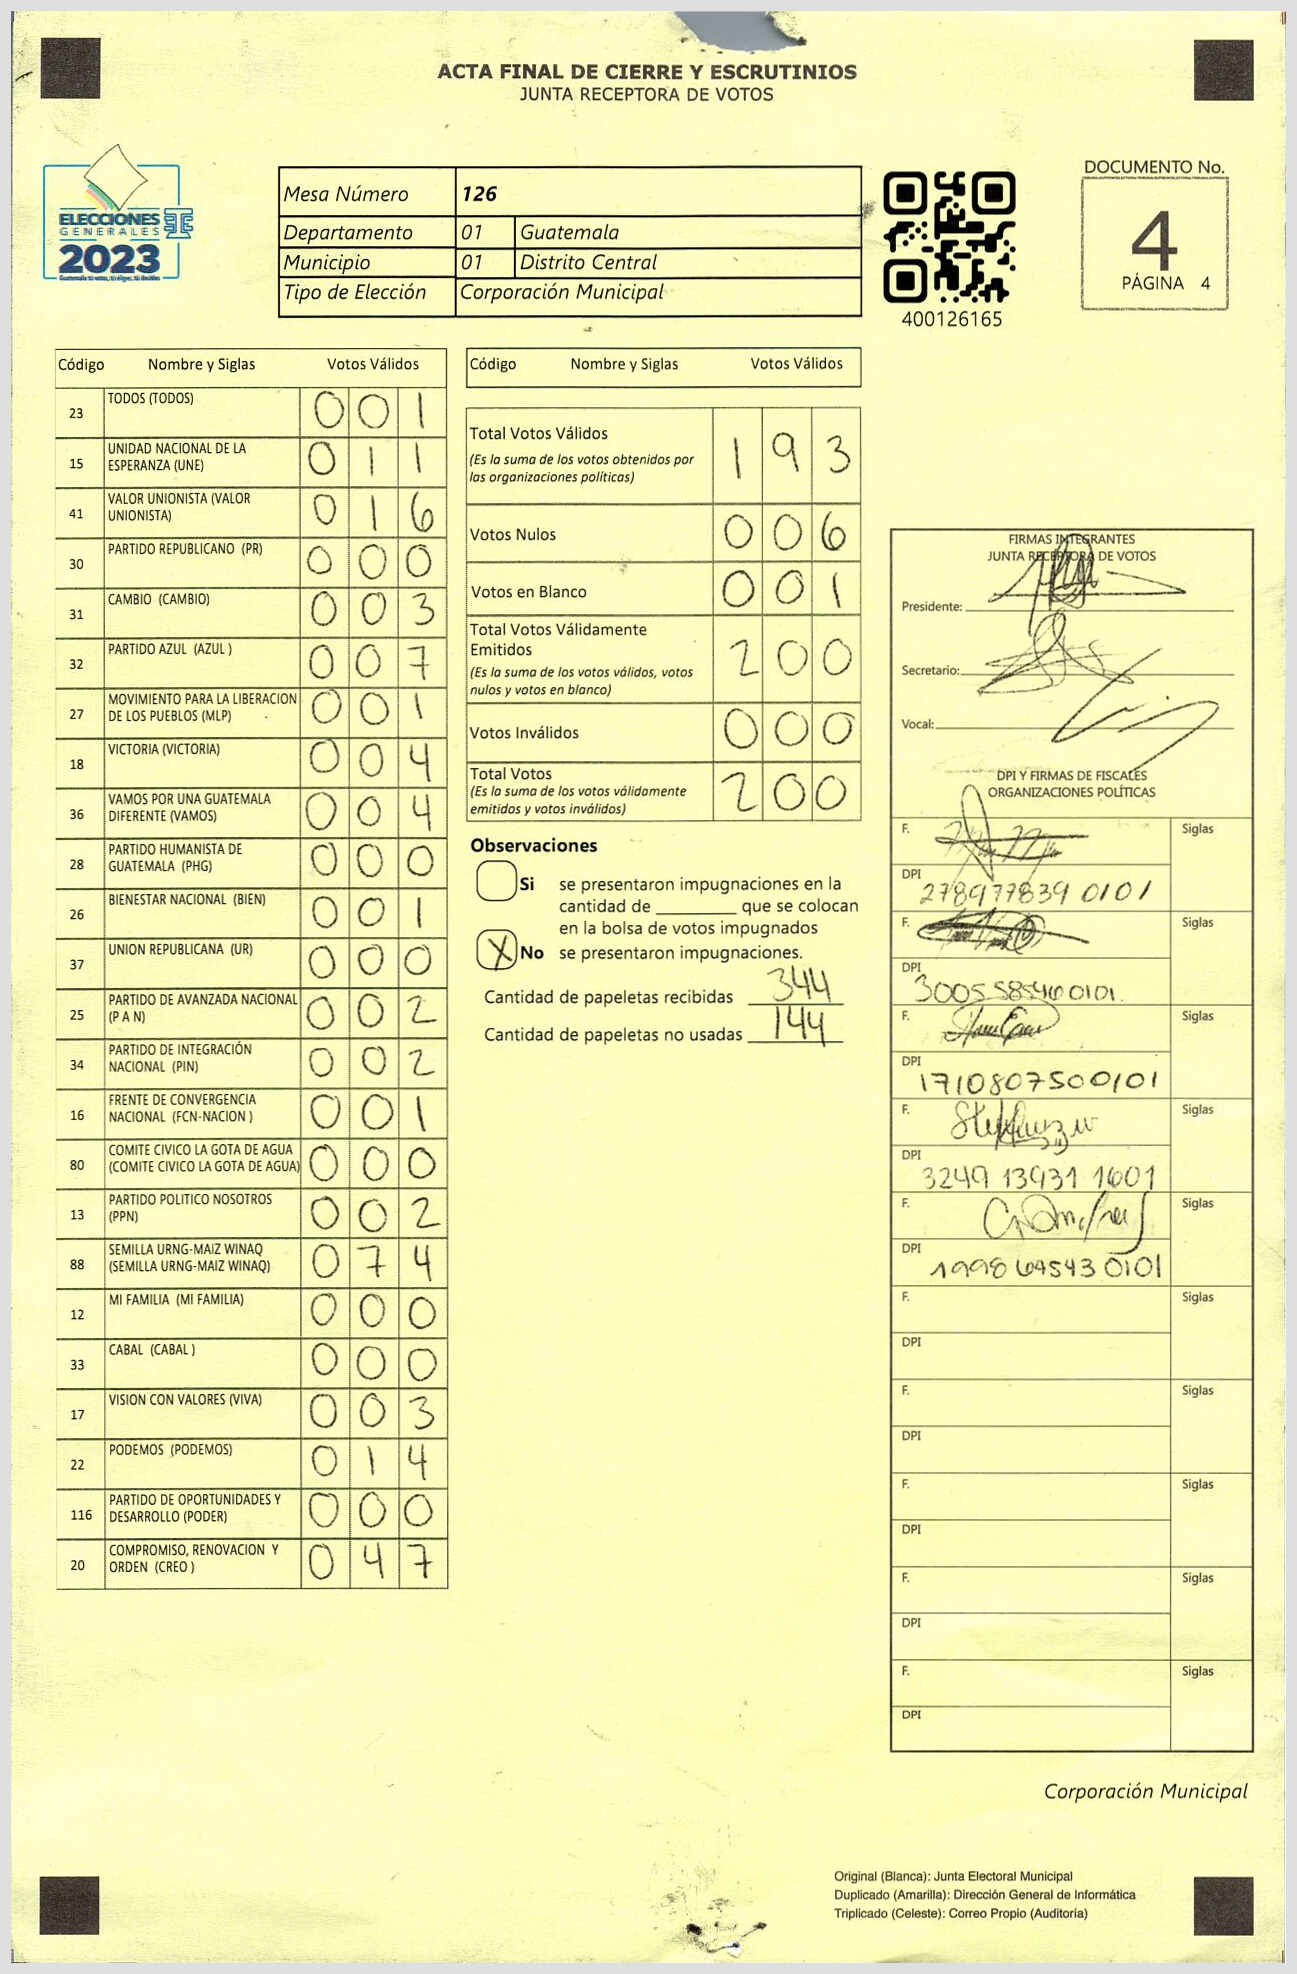 ACTA FINAL DE CIERRE Y ESCRUTINIOS
JUNTA RECEPTORA DE VOTOS
ELECCIONES
GENERALES
2023
Mesa Número 126
Departamento 01 Guatemala
Municipio 01 Distrito Central
Tipo de Elección Corporación Municipal
400126165
DOCUMENTO No.
4
PÁGINA 4
Código Nombre y Siglas Votos Válidos
23 TODOS (TODOS) 0 0 1
15 UNIDAD NACIONAL DE LA
ESPERANZA (UNE) 0 1 1
41 VALOR UNIONISTA (VALOR
UNIONISTA) 0 1 6
30 PARTIDO REPUBLICANO (PR) 0 0 0
31 CAMBIO (CAMBIO) 0 0 3
32 PARTIDO AZUL (AZUL ) 0 0 7
27 MOVIMIENTO PARA LA LIBERACION
DE LOS PUEBLOS (MLP) 0 0 1
18 VICTORIA (VICTORIA) 0 0 4
36 VAMOS POR UNA GUATEMALA
DIFERENTE (VAMOS) 0 0 4
28 PARTIDO HUMANISTA DE
GUATEMALA (PHG) 0 0 0
26 BIENESTAR NACIONAL (BIEN) 0 0 1
37 UNION REPUBLICANA (UR) 0 0 0
25 PARTIDO DE AVANZADA NACIONAL
(P A N) 0 0 2
34 PARTIDO DE INTEGRACIÓN
NACIONAL (PIN) 0 0 2
16 FRENTE DE CONVERGENCIA
NACIONAL (FCN-NACION ) 0 0 1
80 COMITE CIVICO LA GOTA DE AGUA
(COMITE CIVICO LA GOTA DE AGUA) 0 0 0
13 PARTIDO POLITICO NOSOTROS
(PPN) 0 0 2
88 SEMILLA URNG-MAIZ WINAQ
(SEMILLA URNG-MAIZ WINAQ) 0 7 4
12 MI FAMILIA (MI FAMILIA) 0 0 0
33 CABAL (CABAL ) 0 0 0
17 VISION CON VALORES (VIVA) 0 0 3
22 PODEMOS (PODEMOS) 0 1 4
116 PARTIDO DE OPORTUNIDADES Y
DESARROLLO (PODER) 0 0 0
20 COMPROMISO, RENOVACION Y
ORDEN (CREO ) 0 4 7
Código Nombre y Siglas Votos Válidos
Total Votos Válidos 1 9 3
(Es la suma de los votos obtenidos por
las organizaciones políticas)
Votos Nulos 0 0 6
Votos en Blanco 0 0 1
Total Votos Válidamente
Emitidos 2 0 0
(Es la suma de los votos válidos, votos
nulos y votos en blanco)
Votos Inválidos 0 0 0
Total Votos 2 0 0
(Es la suma de los votos válidamente
emitidos y votos inválidos)
Observaciones
Si se presentaron impugnaciones en la
cantidad de ________ que se colocan
en la bolsa de votos impugnados
X No se presentaron impugnaciones.
Cantidad de papeletas recibidas 344
Cantidad de papeletas no usadas 144
FIRMAS INTEGRANTES
JUNTA RECEPTORA DE VOTOS
Presidente:
Secretario:
Vocal:
DPI Y FIRMAS DE FISCALES
ORGANIZACIONES POLÍTICAS
F. Siglas
DPI 278977839 0101
F. Siglas
DPI 3005585460101
F. Siglas
DPI 1710807500101
F. Siglas
DPI 3249 13931 1601
F. Siglas
DPI 1998 645430101
F. Siglas
DPI
F. Siglas
DPI
F. Siglas
DPI
F. Siglas
DPI
F. Siglas
DPI
Corporación Municipal
Original (Blanca): Junta Electoral Municipal
Duplicado (Amarilla): Dirección General de Informática
Triplicado (Celeste): Correo Propio (Auditoría)